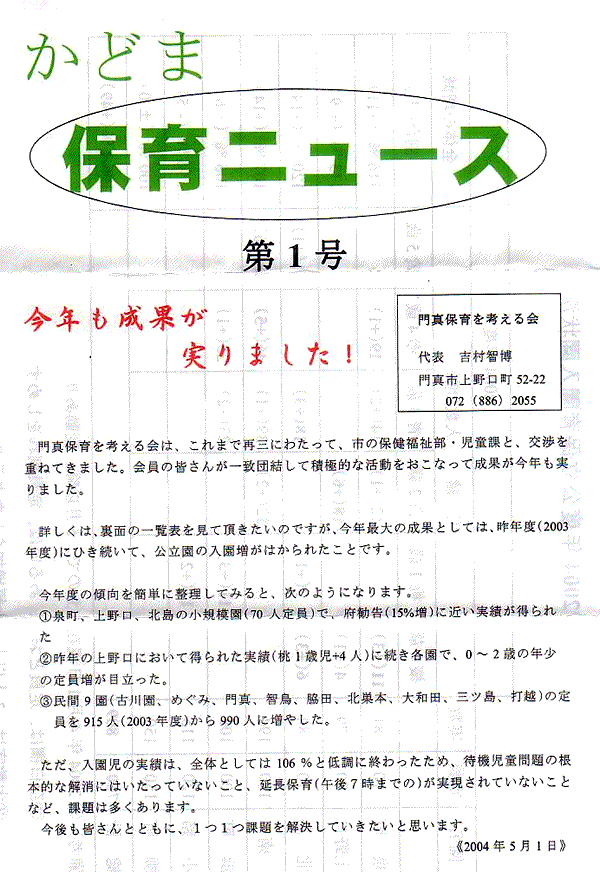 かどま
保育ニュース
第1号
今年も成果が
実りました！
門真保育を考える会
代表　吉村智博
門真市上野口町 52-22
072（886）2055
門真保育を考える会は、これまで再三にわたって、市の保健福祉部・児童課と、交渉を
重ねてきました。会員の皆さんが一致団結して積極的な活動をおこなって成果が今年も実
りました。
詳しくは、裏面の一覧表を見て頂きたいのですが、今年最大の成果としては、昨年度(2003
年度)にひき続いて、公立園の入園増がはかられたことです。
今年度の傾向を簡単に整理してみると、次のようになります。
①泉町、上野口、北島の小規模園(70 人定員)で、府勧告(15%増)に近い実績が得られ
た
②昨年の上野口において得られた実績(桃 1 歳児+4 人)に続き各園で、0 ～ 2 歳の年少
の定員増が目立った。
③民間 9 園(古川園、めぐみ、門真、智鳥、脇田、北巣本、大和田、三ツ島、打越)の定
員を 915 人(2003 年度)から 990 人に増やした。
ただ、入園児の実績は、全体としては 106 %と低調に終わったため、待機児童問題の根
本的な解消にはいたっていないこと、延長保育(午後 7 時までの)が実現されていないこと
など、課題は多くあります。
今後も皆さんとともに、1つ1つ課題を解決していきたいと思います。
《2004 年 5 月 1 日》